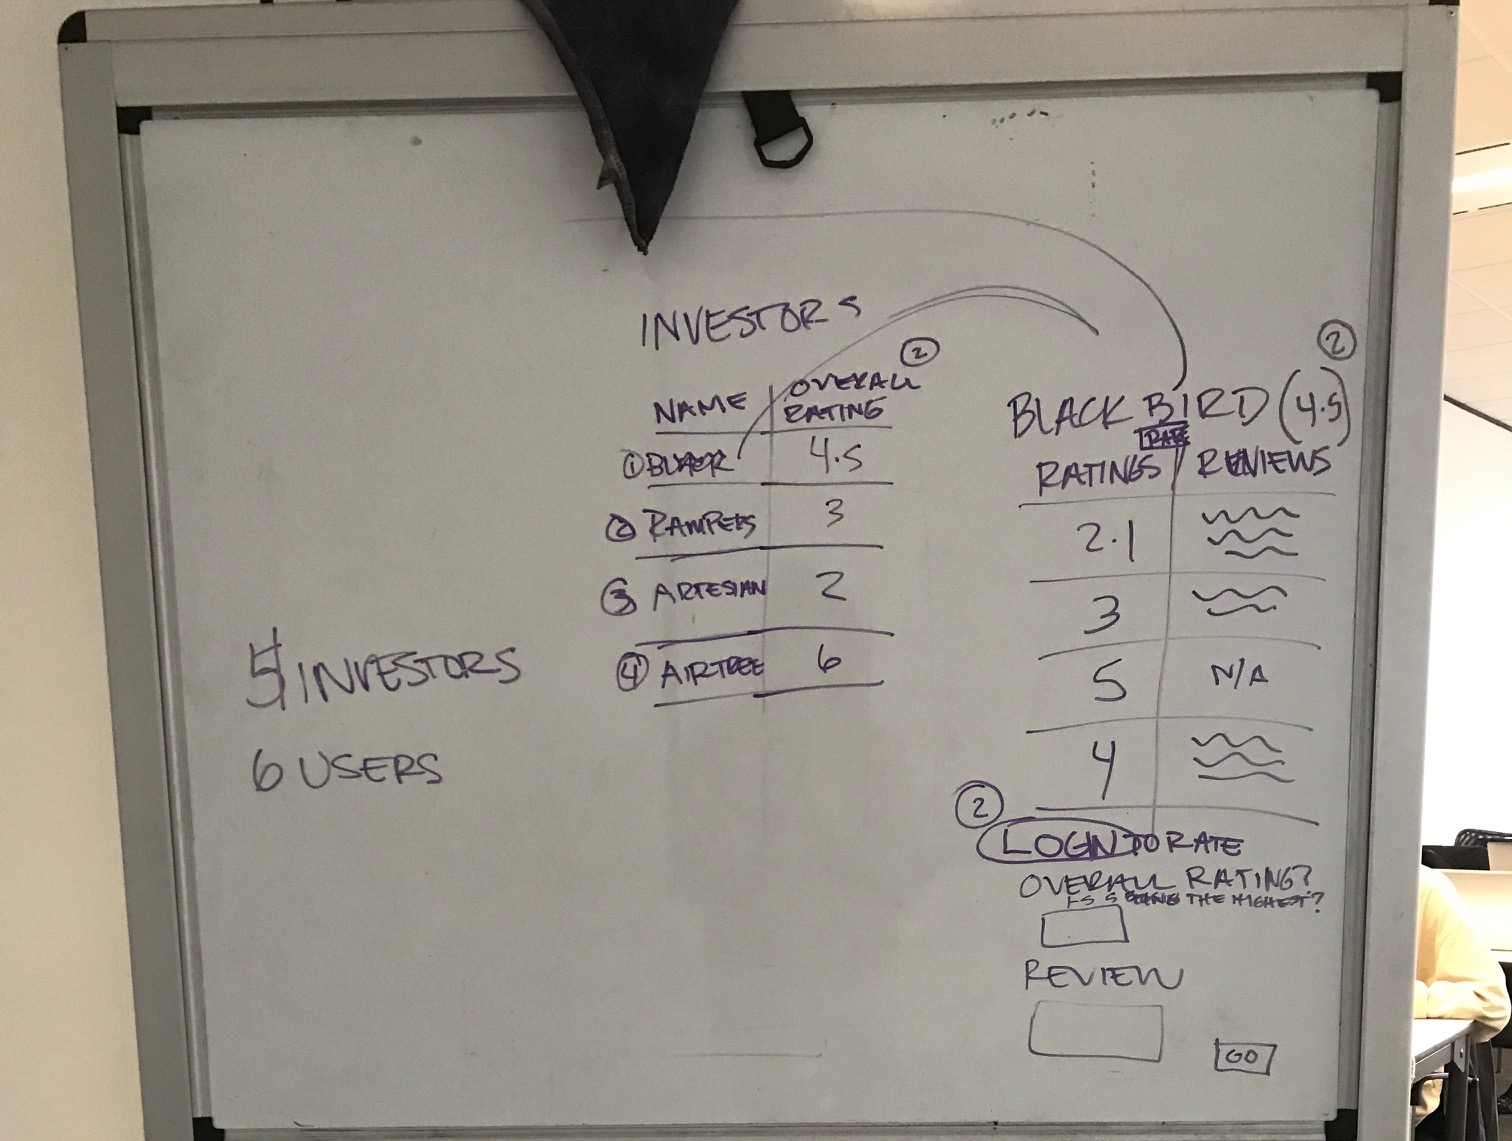 INVESTORS
②
NAME OVERALL RATING
① 4.5
② RAMPERS 3
③ ARTESIAN 2
④ AIRTREE 6
5 INVESTORS
6 USERS
②
BLACKBIRD (4.5)
RATE
RATINGS REVIEWS
2.1
3
5 N/A
4
②
LOGIN TO RATE
OVERALL RATING?
5 BEING THE HIGHEST?
REVIEW
GO